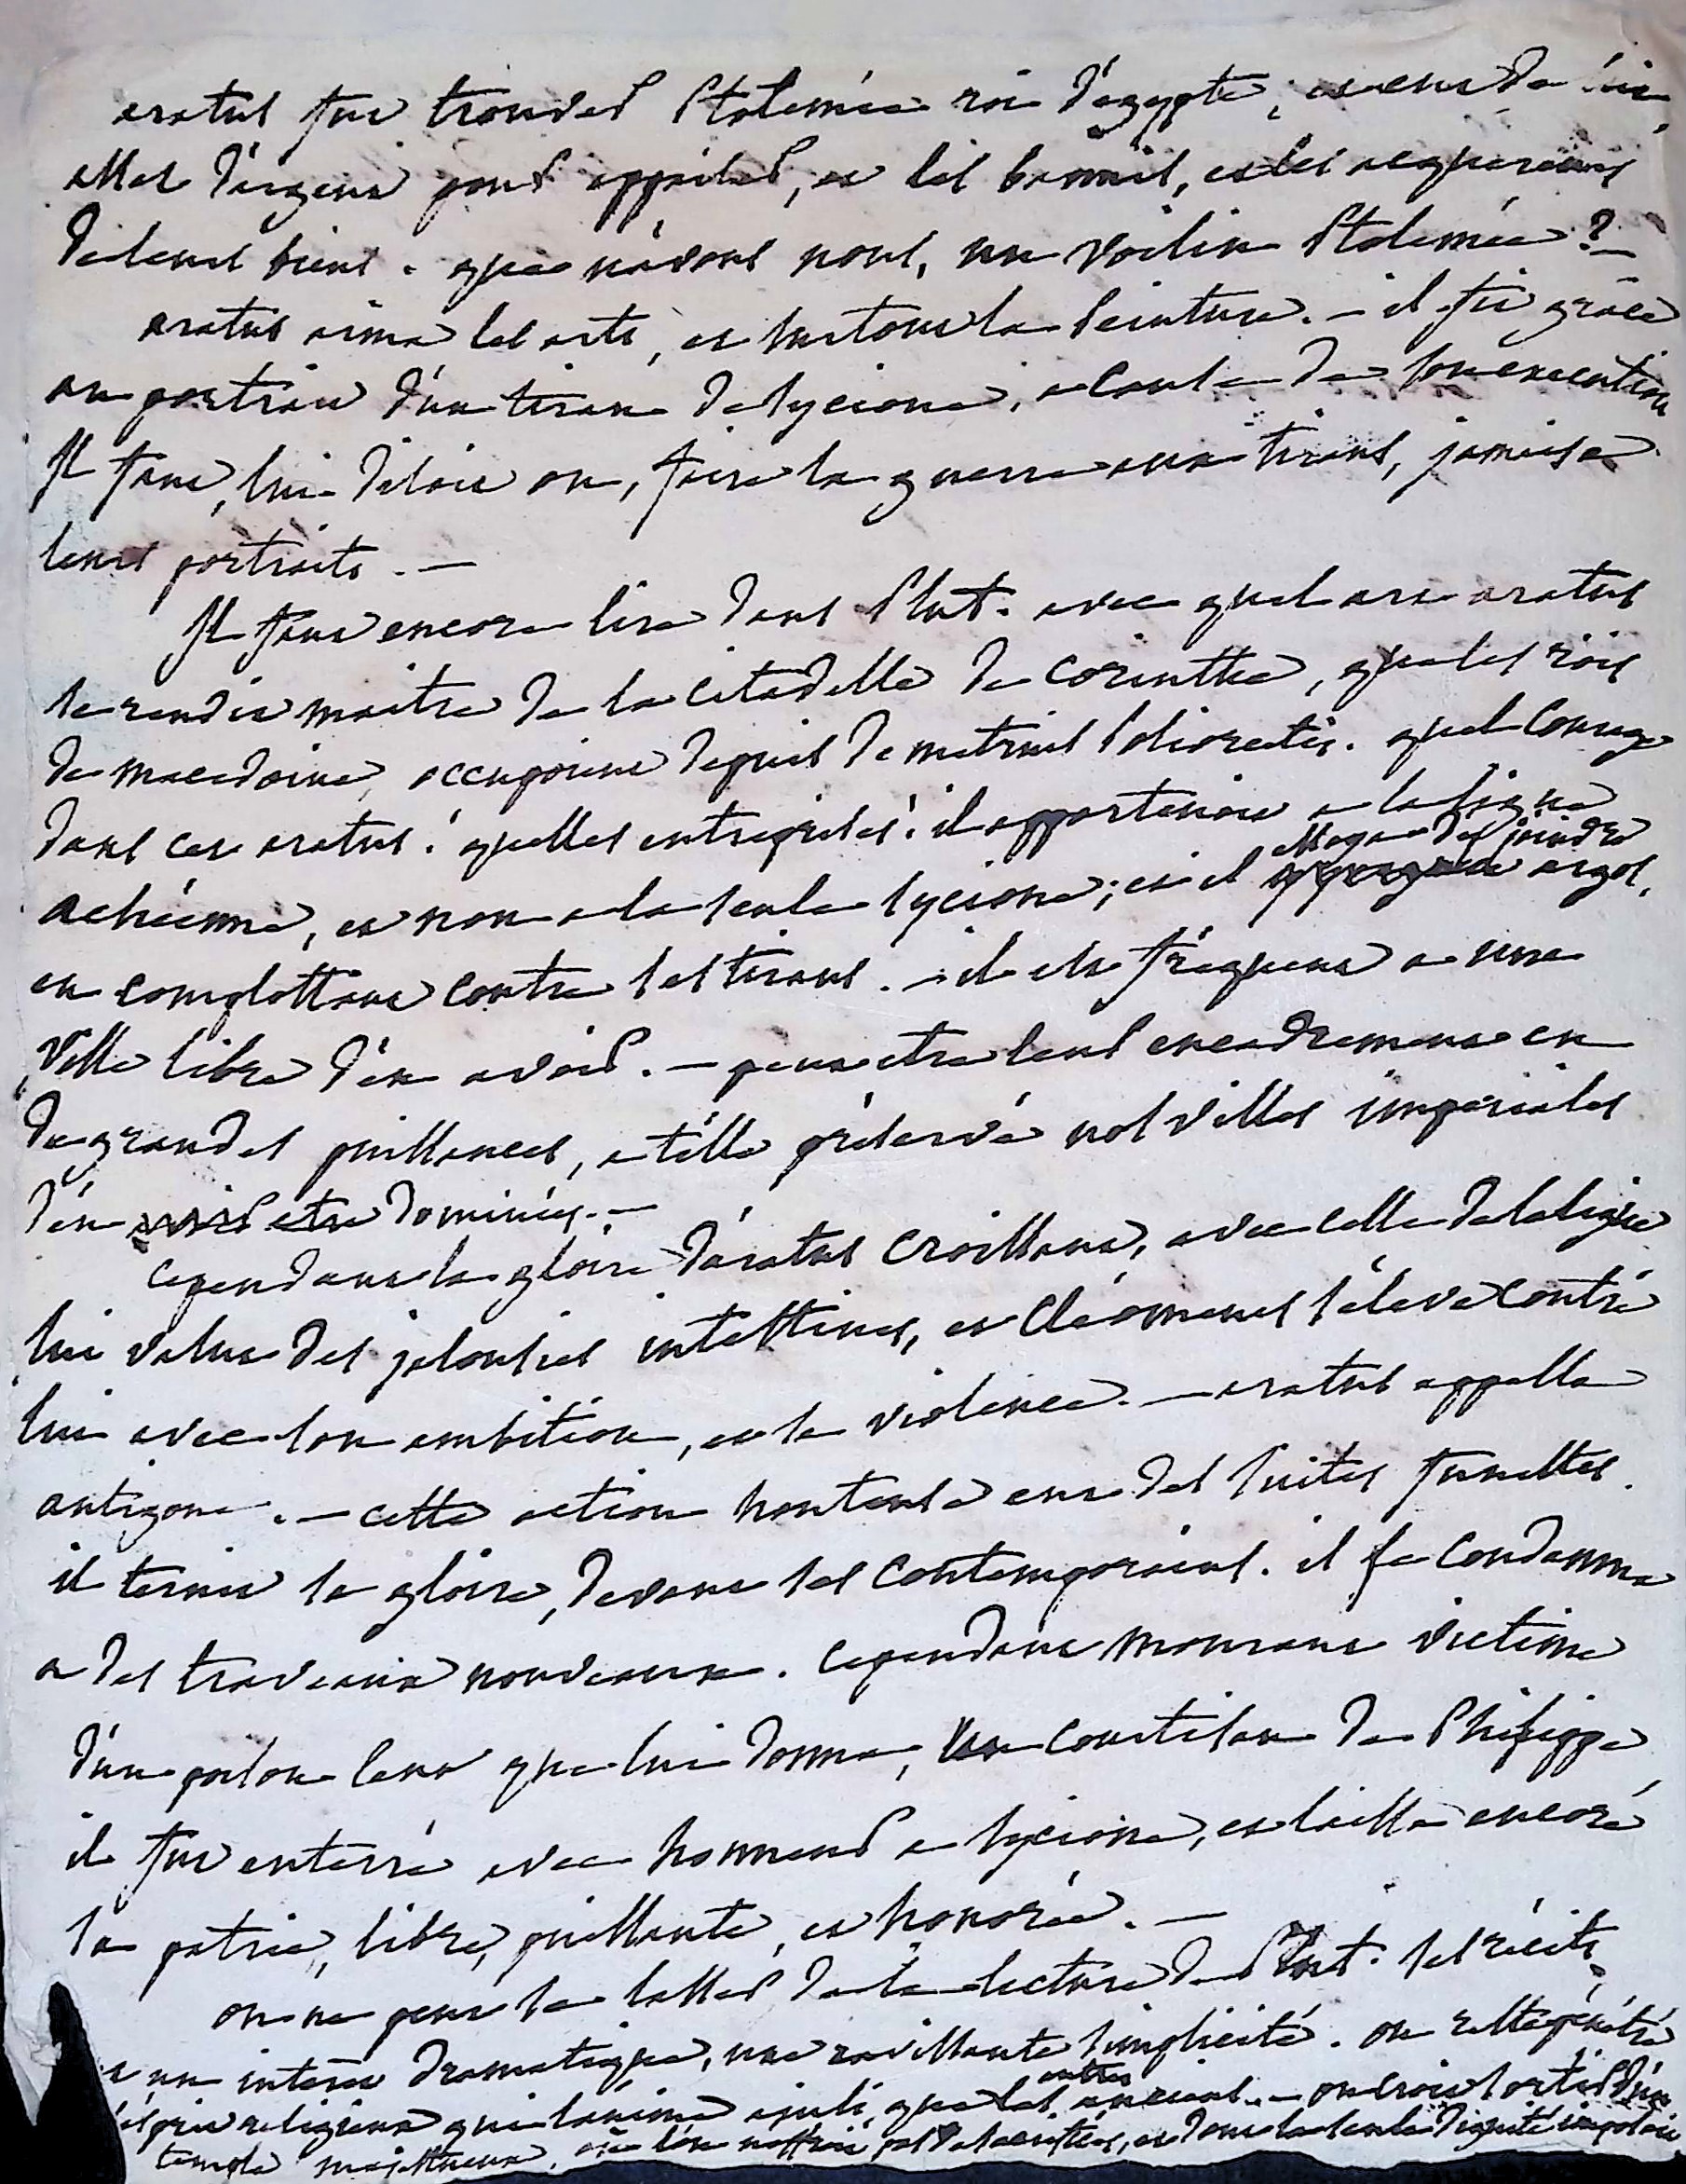 aratus fut trouver Ptolemée roi d'égypte, et eut de lui
assez d'argent pour appaiser, et les bannis, et les acquereurs
de leurs biens. que n'avons nous, un voisin Ptolemée ? —
aratus aima les arts, et surtout la peinture. — il fit grace
au portrait d'un tiran de sycione, a cause de son execution
Il faut, lui disait on, faire la guerre aux tirans, jamais a
leurs portraits. —
Il faut encore lire dans Plut. avec quel art aratus
se rendit maitre de la citadelle de corinthe, que les rois
de macedoine, occupaient depuis demetrius Poliorcetes. quel courage
dans cet aratus ! quelles entreprises ! il appartenait a la ligue
achéenne, et non a la seule sycione ; et il essaya de s'y joindre argos,
en complottant contre ses tirans. — il est fréquent a une
ville libre d'en avoir. — peut etre leur encadrement en
de grandes puissances, a t'elle préservé nos villes imperiales
d'en avoir etre dominées. —
cependant la gloire d'aratus croissant, avec celle de la ligue
lui valut des jalousies intestines, et Cléomenes s'eleva contre
lui avec son ambition, et sa violence. — aratus appella
antigone. — cette action honteuse eut des suites funestes.
il ternit sa gloire, devant ses contemporains. il se condamna
a des travaux nouveaux. cependant mourant victime
d'un poison lent que lui donna, un courtisan de Philippe,
il fut enterré avec honneur a sycione, et laissa encore
sa patrie, libre, puissante, et honorée. —
on ne peut se lasser de la lecture de Plut. ses récits
un interet dramatique, une ravissante simplicité. on est pénétré
esprit religieux qui l'anime ainsi, que les autres anciens. — on croit sortir d'un
temple majestueux, où l'on n'offrit pas de sacrifices, et dont la seule dignité